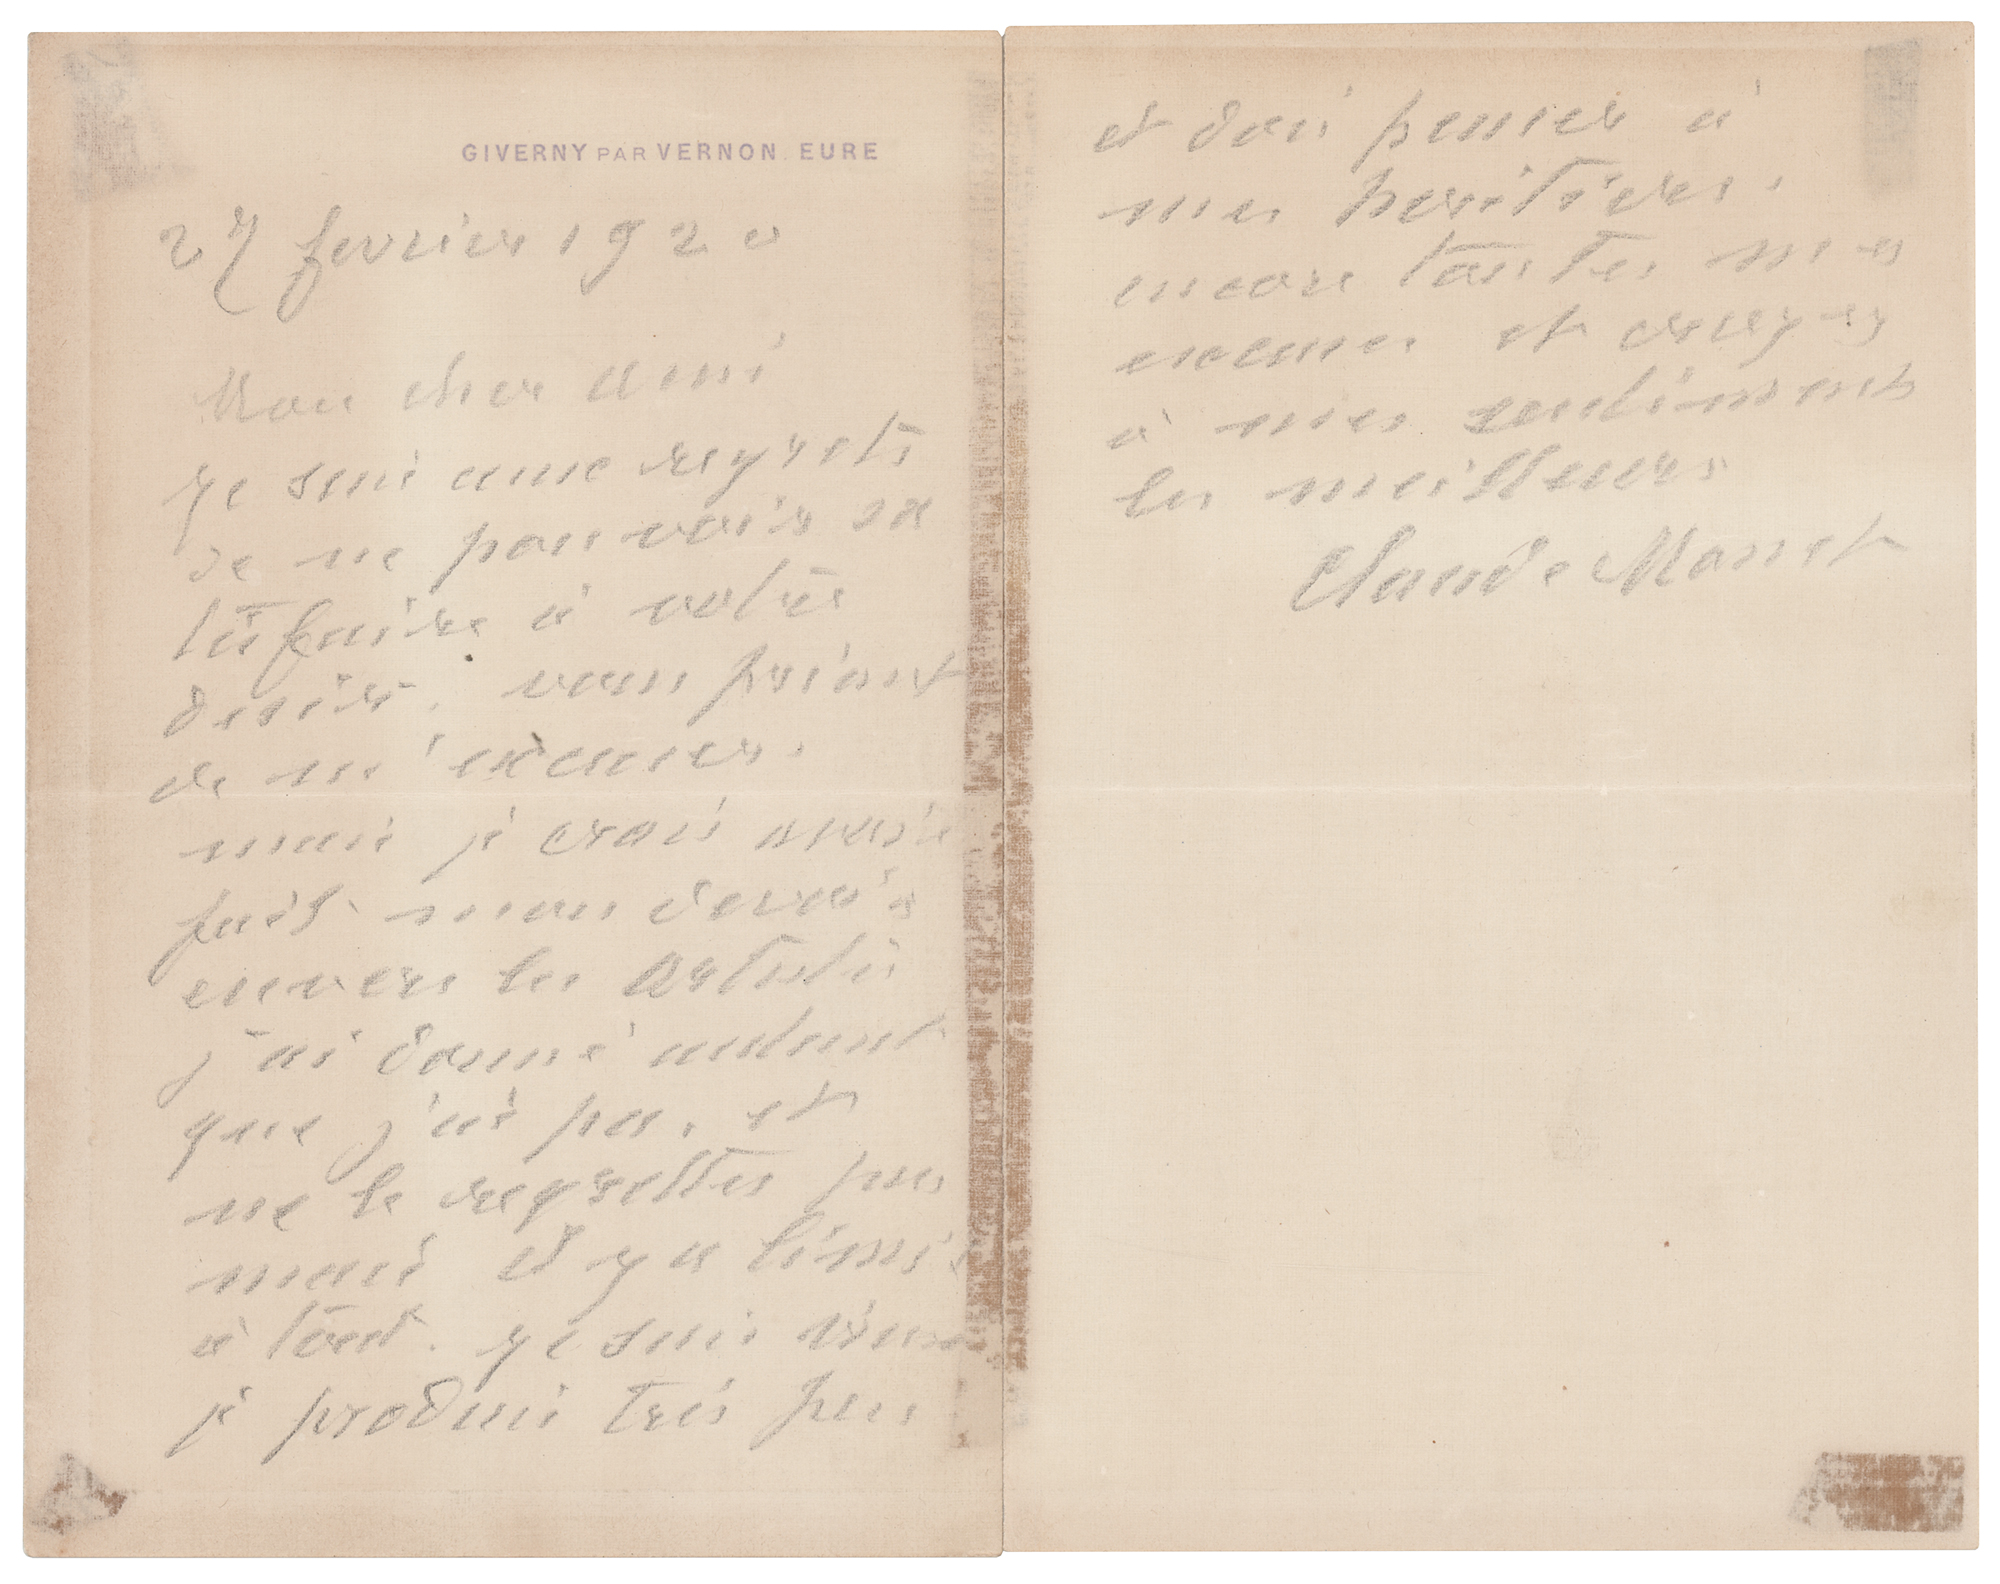 GIVERNY PAR VERNON. EURE
27 fevrier 1920
Mon cher ami
je suis aux regrets
de ne pouvoir sa
tisfaire à votre
desir, vous priant
de m'excuser.
mais je crois avoir
fait mon devoir
envers les artistes
j'ai donné autant
que j'ai pu, et
ne le regrettes pas
mais il y a limite
à tout. je suis vieux
je produis très peu
et dois penser à
mes heritiers.
encore toutes mes
excuses et croyez
à mes sentiments
les meilleurs
Claude Monet